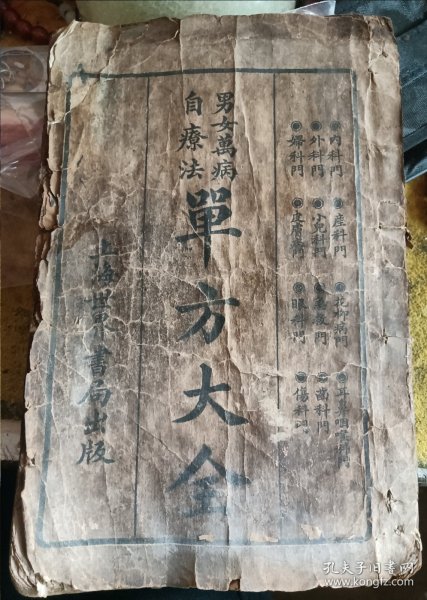 ◉內科門 ◉產科門 ◉花柳病門 ◉耳鼻咽喉門
◉外科門 ◉小兒科門 ◉門 ◉齒科門
◉婦科門 ◉皮膚門 ◉眼科門 ◉傷科門
男女萬病
自療法
單方大全
上海世界書局出版
孔夫子旧书网
www.kongfz.com